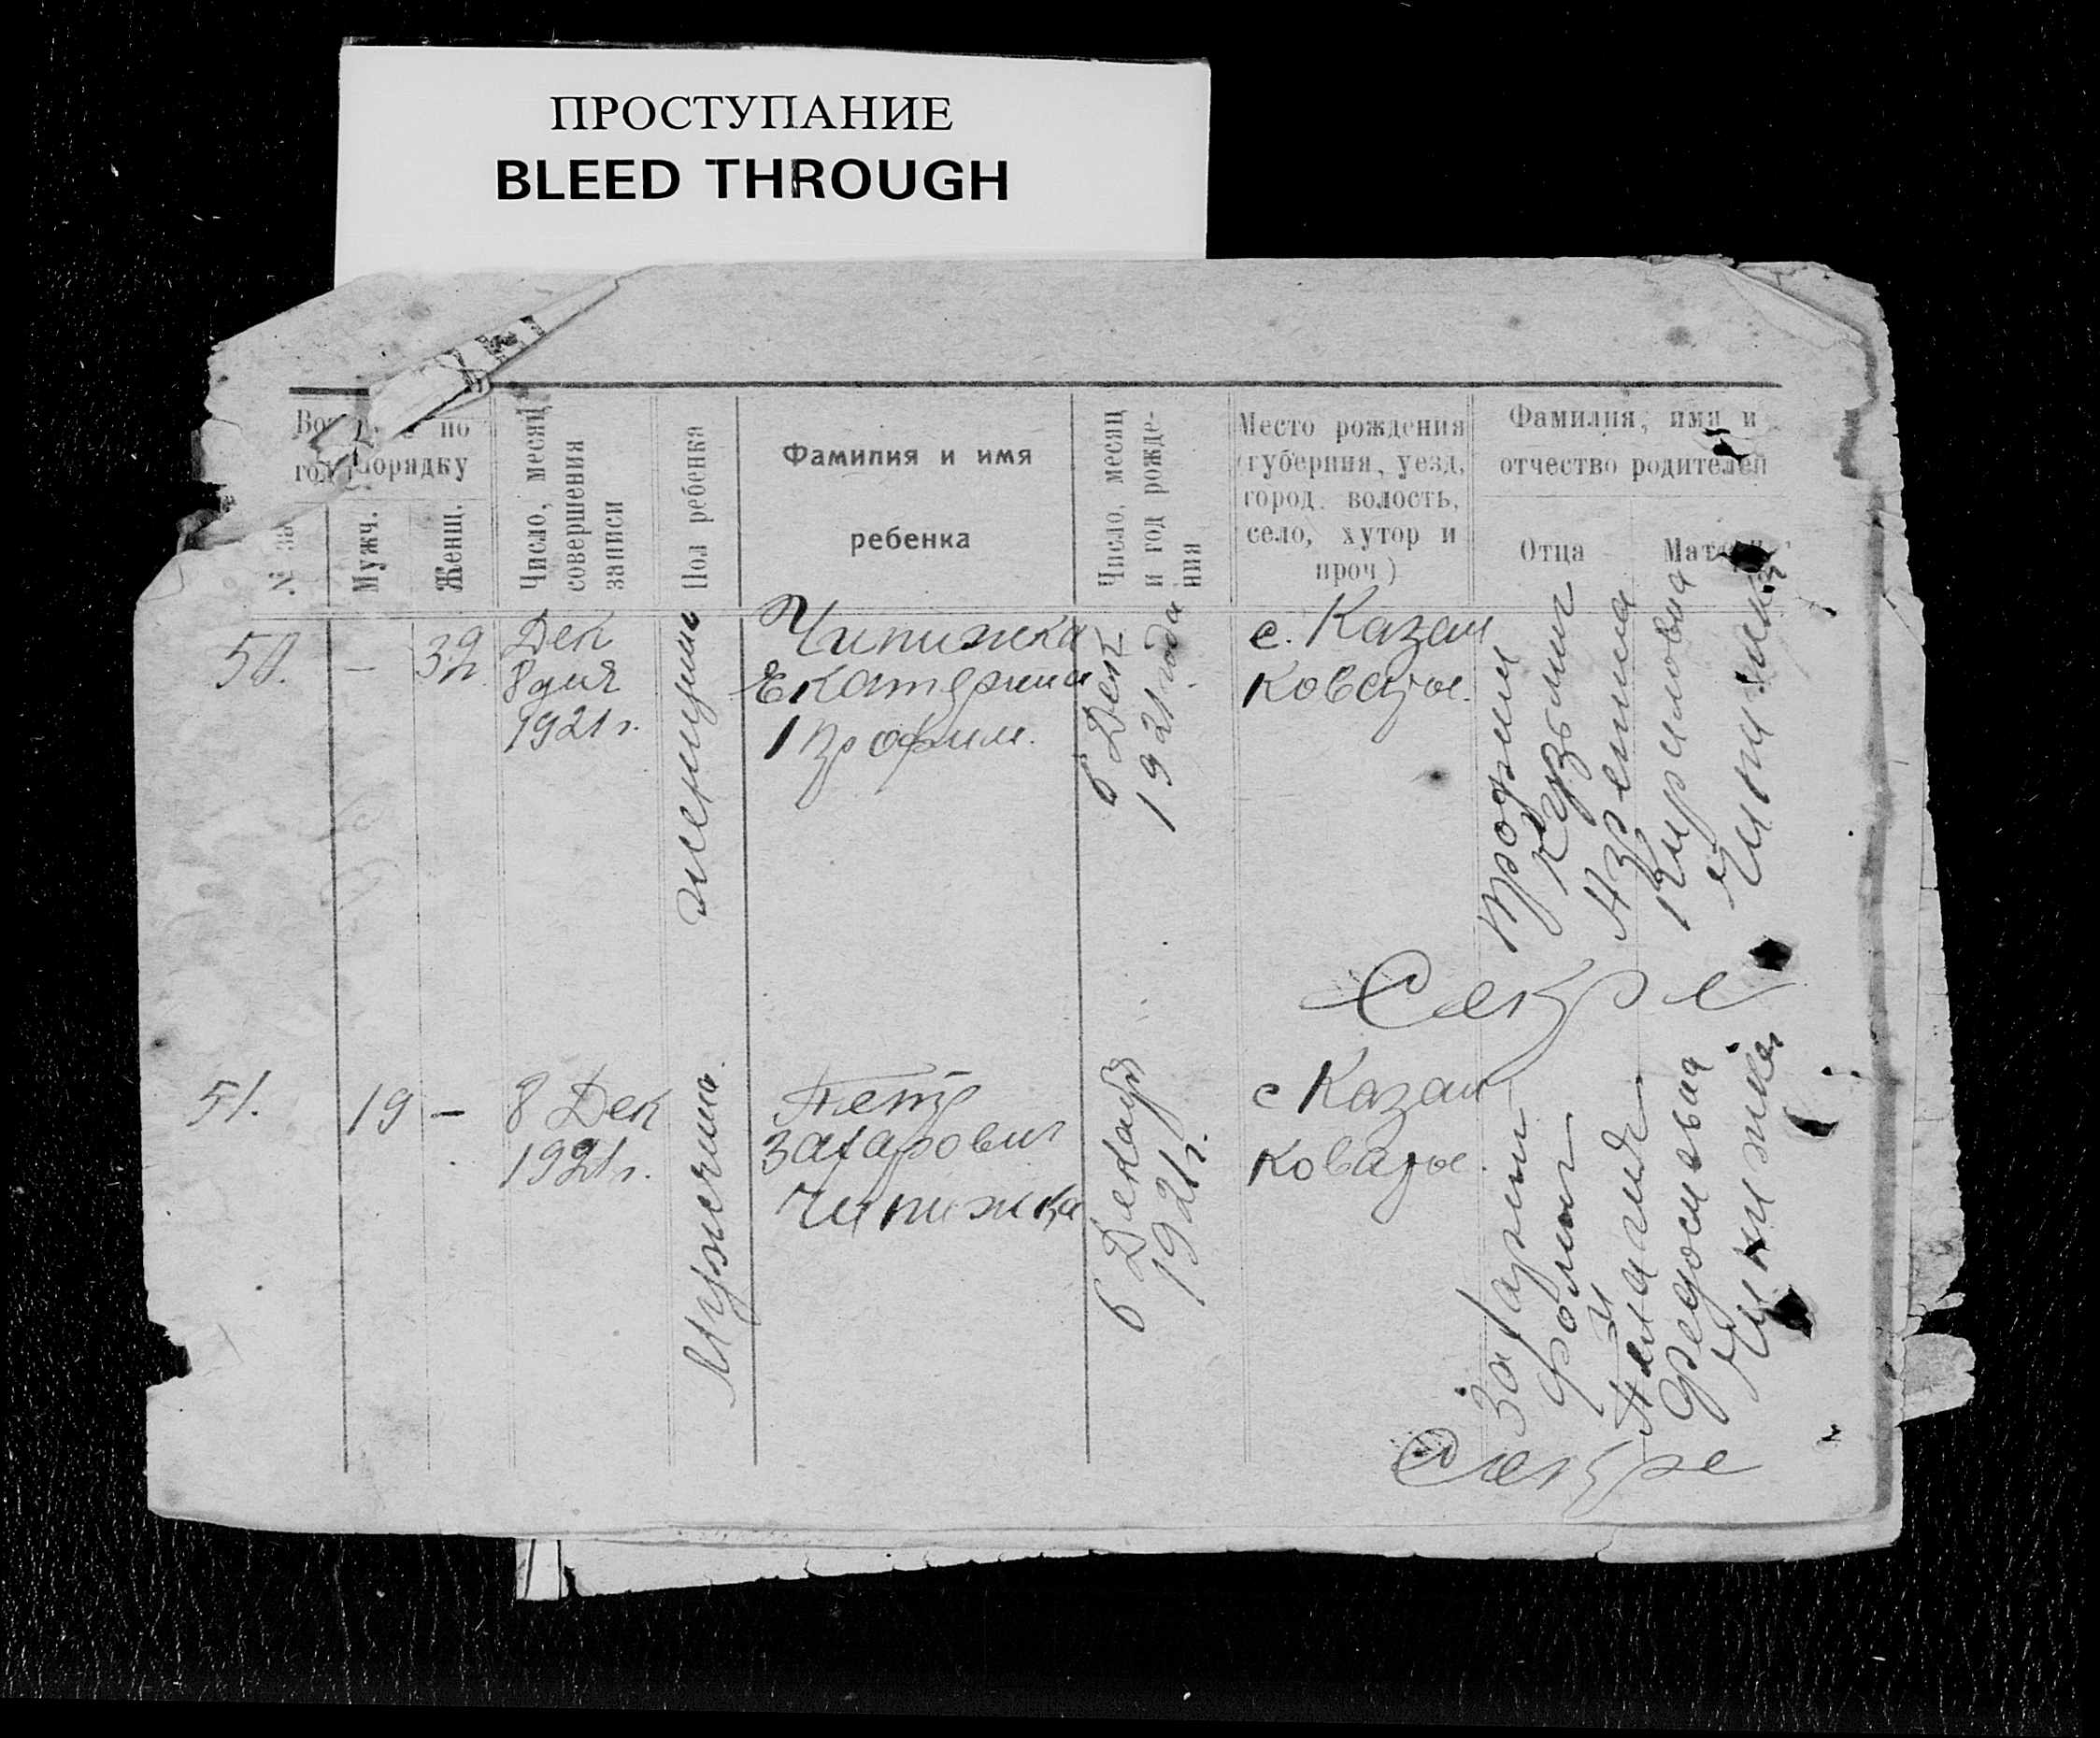 ПРОСТУПАНИЕ
BLEED THROUGH
по
порядку
Мужч.
Женщ.
Число, месяц
совершения
записи
Пол ребенка
Фамилия и имя
ребенка
Число, месяц
и год рожде-
ния
Место рождения
(губерния, уезд,
город, волость,
село, хутор и
проч)
Фамилия, имя и
отчество родителей
Отца
50.
—
32
Дек
8 дня
1921 г.
женщина
Чипижка
Екатерина
Трофим.
6 Дек
1921 года
с. Казан
коваты.
Трофим
Кузьмич
Кириловна
Чипижка
Секре
51.
19
—
8 Дек
1921 г.
Мужчина.
Петр
Захарович
Чипижка
6 Декабря
1921 г.
с Казан
Захарий
Фомич
и
Федосиевна
Чипижка
Секре